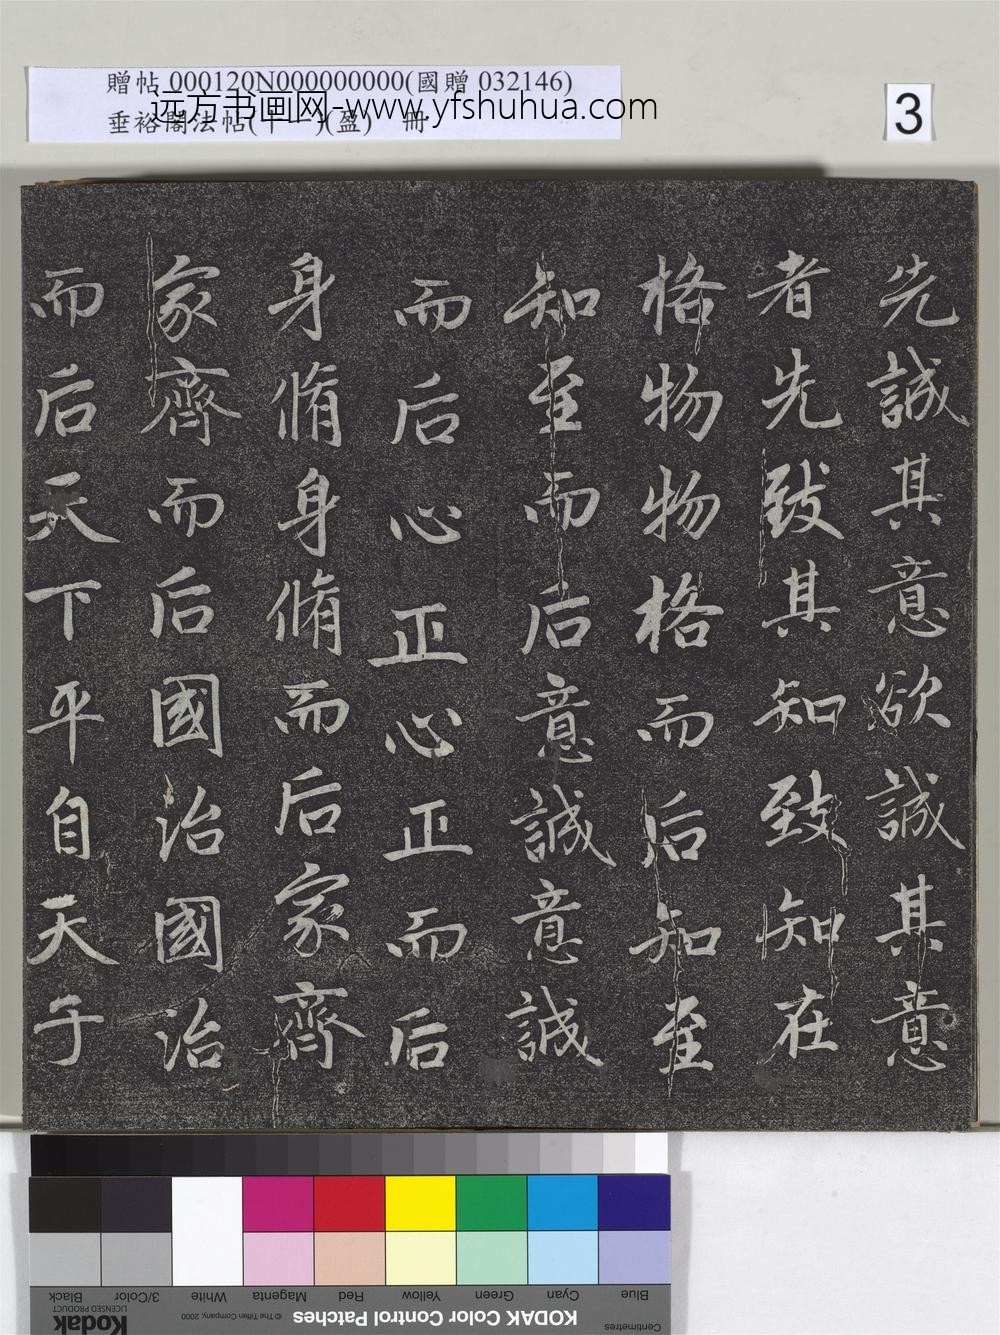 贈帖 000120N000000000(國贈 032146)
垂裕閣法帖(十一)(盈) 冊
远方书画网-www.yfshuhua.com
3
先誠其意欲誠其意
者先致其知致知在
格物物格而后知至
知至而后意誠意誠
而后心正心正而后
身脩身脩而后家齊
家齊而后國治國治
而后天下平自天子
Blue
Cyan
Green
Yellow
Red
Magenta
White
3/Color
Black
Centimetres
KODAK Color Control Patches
© The Tiffen Company, 2000
Kodak
LICENSED PRODUCT